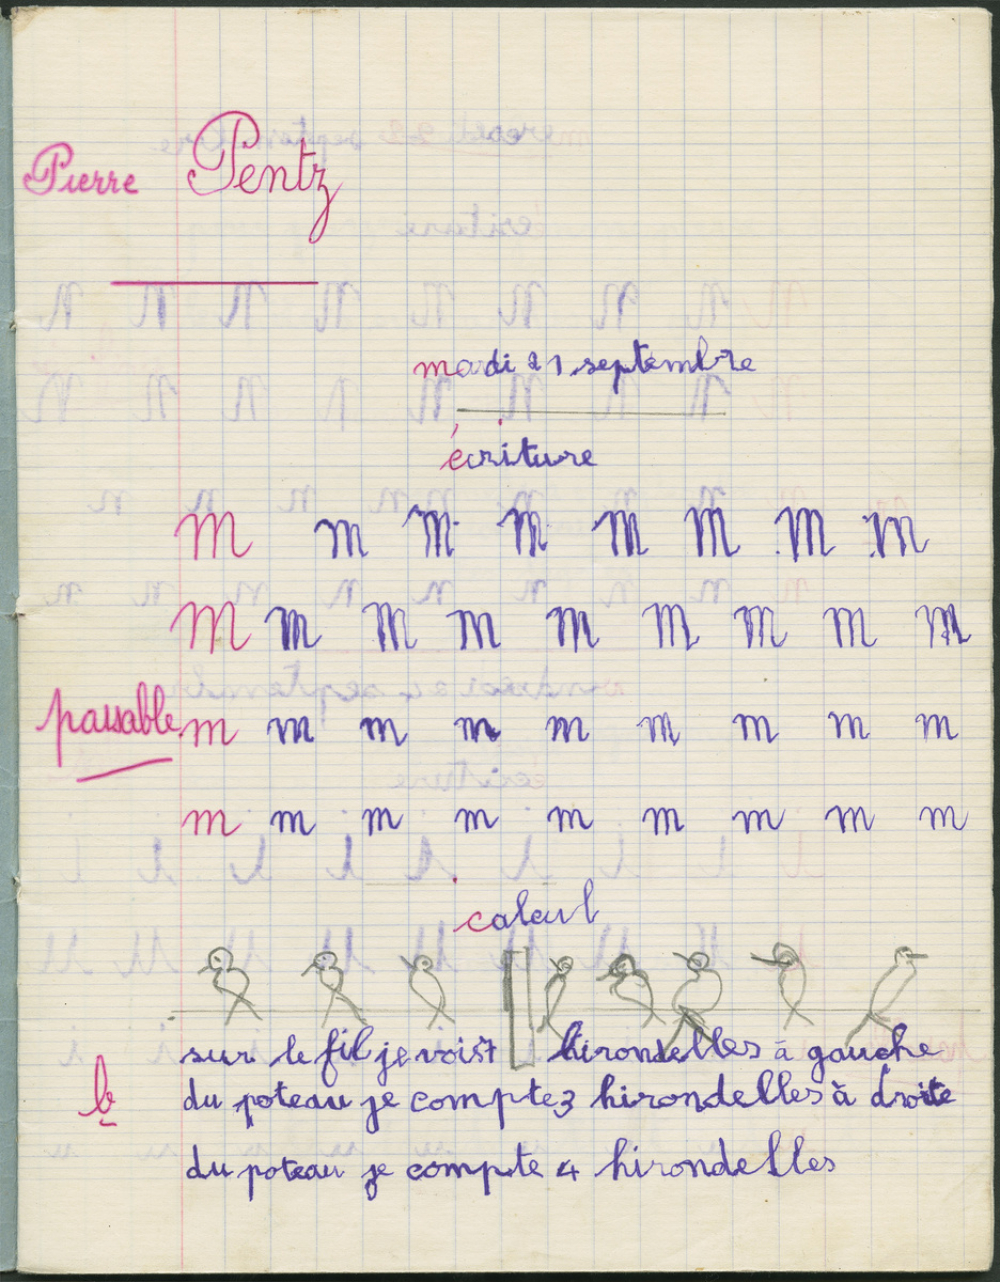 Pierre Pentz
mardi 21 septembre
écriture
M m M M M M M M
M M M M M M M M M
passable m m m m m m m m m
m m m m m m m m m
calcul
sur le fil je vois 7 hirondelles à gauche
b du poteau je compte 3 hirondelles à droite
du poteau je compte 4 hirondelles